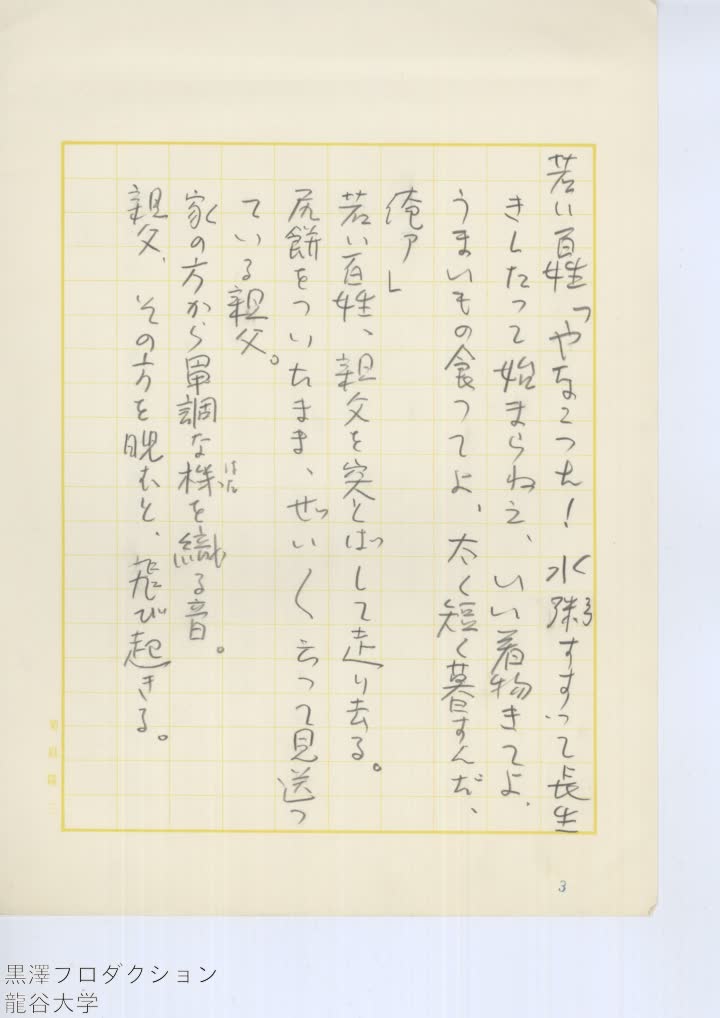 若い百姓「やなこった！水粥すすって長生
きしたって始まらねえ、いい着物きてよ、
うまいもの食ってよ、太く短く暮すんだ、
俺ァ」
若い百姓、親父を突とばして走り去る。
尻餅をついたまま、ぜいぜい云って見送っ
ている親父。
家の方から単調な機を織る音。
はた
親父、その方を睨むと、飛び起きる。
3
黒澤プロダクション
龍谷大学